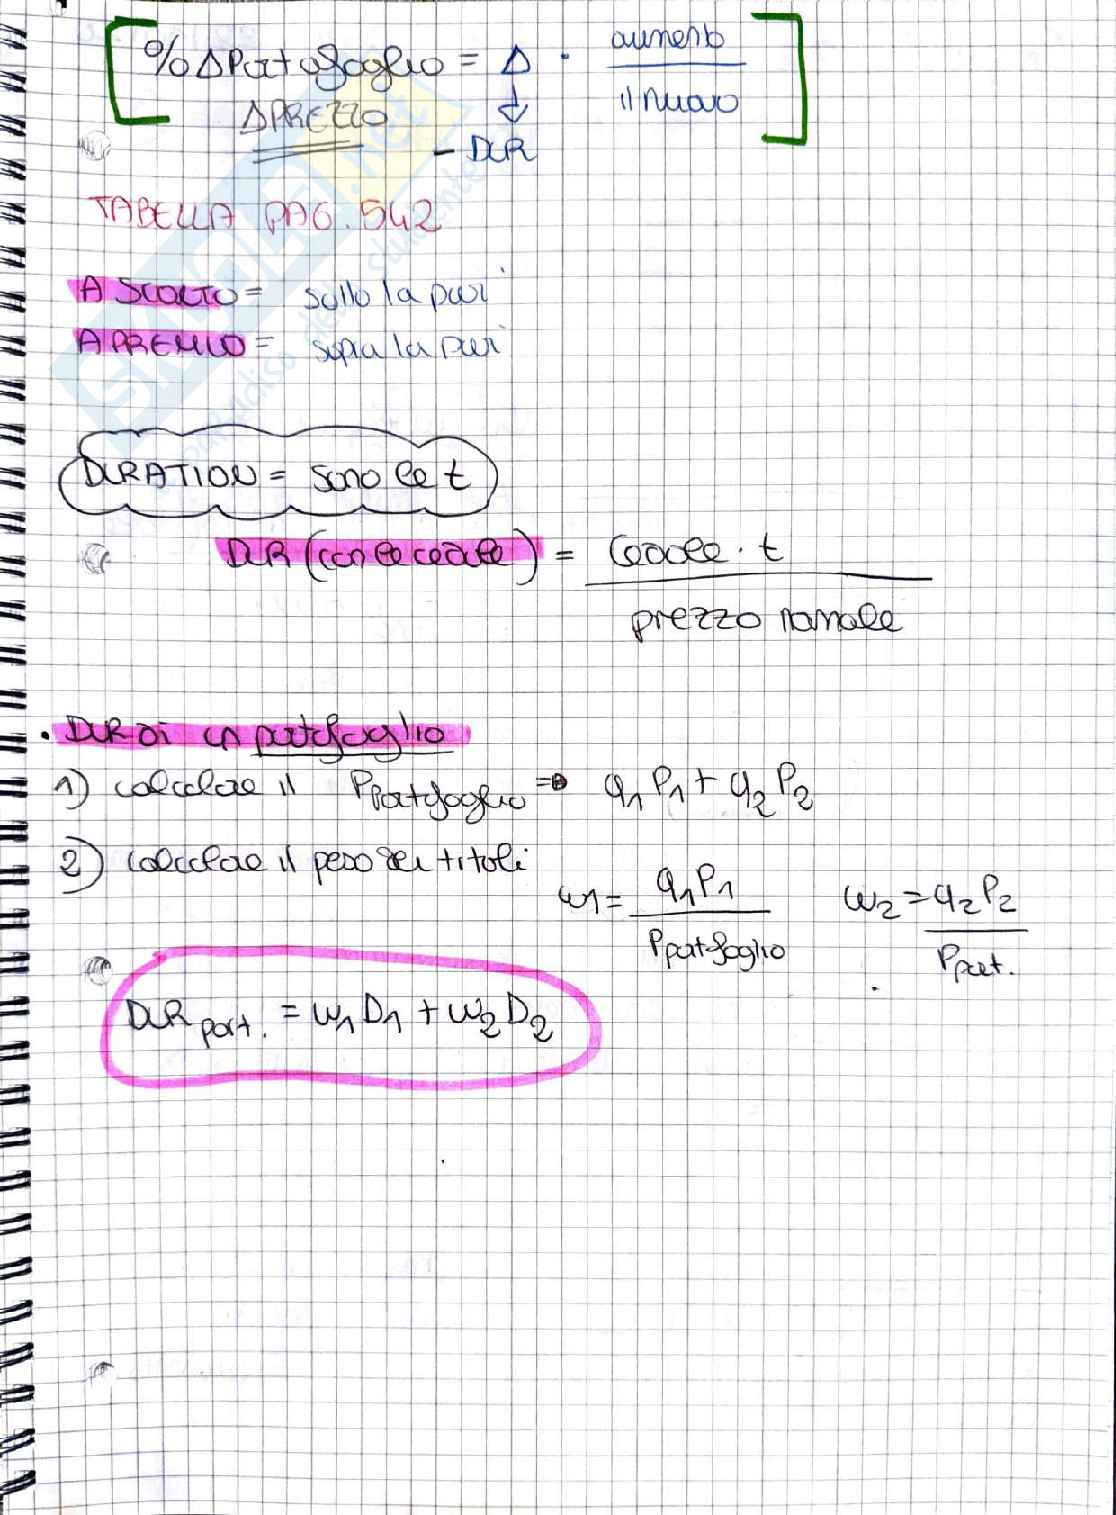 %ΔPortafoglio = Δ · aumento / il nuovo
ΔPREZZO ↓
- DUR
TABELLA PAG. 542
A SCONTO = sotto la pari
A PREMIO = sopra la pari
DURATION = sono le t
DUR (con le cedole) = Cedole · t / prezzo normale
• DUR di un portafoglio
1) calcolare il Pportafoglio => q1P1 + q2P2
2) calcolare il peso dei titoli
w1 = q1P1 / Pportafoglio w2 = q2P2 / Pport.
DUR port. = w1D1 + w2D2
SKUOLA.net